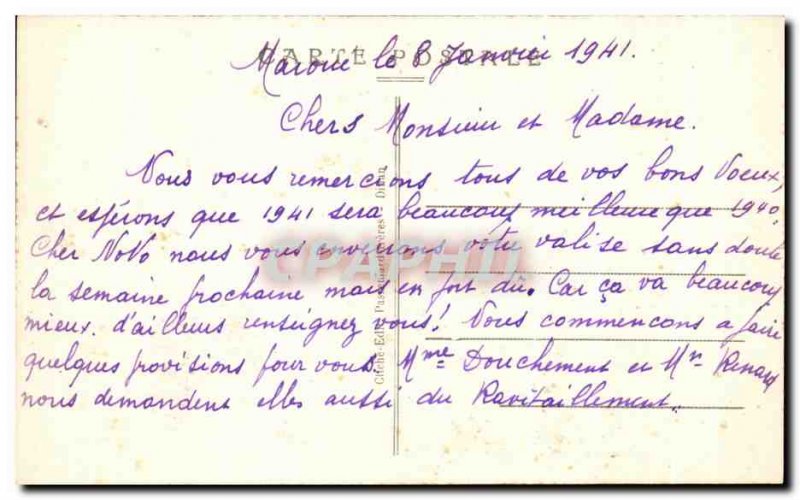 CARTE POSTALE
Maroue le 8 Janvier 1941.
Chers Monsieur et Madame.
Nous vous remercions tous de vos bons Voeux,
et espérons que 1941 sera beaucoup meilleure que 1940.
Cher NoNo nous vous enverrons votre valise sans doute
la semaine prochaine mais en port dû. Car ça va beaucoup
mieux. d'ailleurs renseignez vous! Nous commencons a faire
quelques provisions pour vous. Mme Douchement et Mr Renard
nous demandent elles aussi du Ravitaillement.
Cliché-Edit. Dinan
CPAPHIL